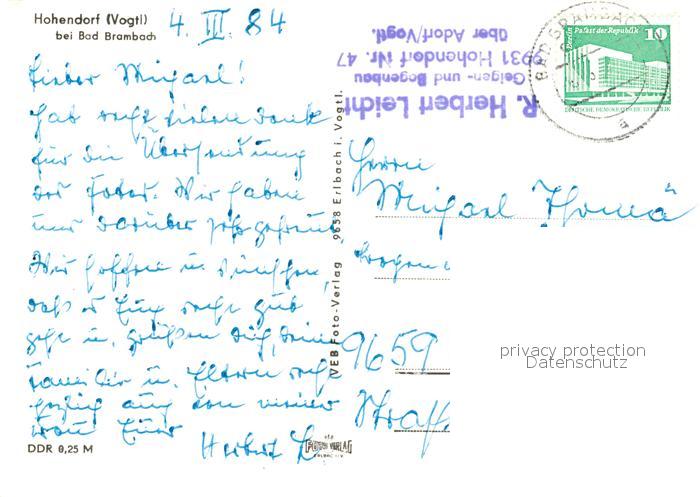 Hohendorf (Vogtl)
bei Bad Brambach
4. III. 84
Lieber Michael!
Hab recht vielen Dank
für die Übersendung
der Fotos. Wir haben
uns darüber sehr gefreut.
Wir hoffen u. wünschen,
daß es Euch recht gut
geht u. grüßen Dich, deine
Familie u. Eltern recht
herzlich auch von meiner
Frau Euer
Herbert L.
DDR 0,25 M
VEB Foto-Verlag 9658 Erlbach i. Vogtl.
R. Herbert Leicht
Geigen- und Bogenbau
9931 Hohendorf Nr. 47
über Adorf/Vogtl.
BAD BRAMBACH
Berlin Palast der Republik 10
DEUTSCHE DEMOKRATISCHE REPUBLIK
Herrn
Michael Thomä
9659
privacy protection
Datenschutz